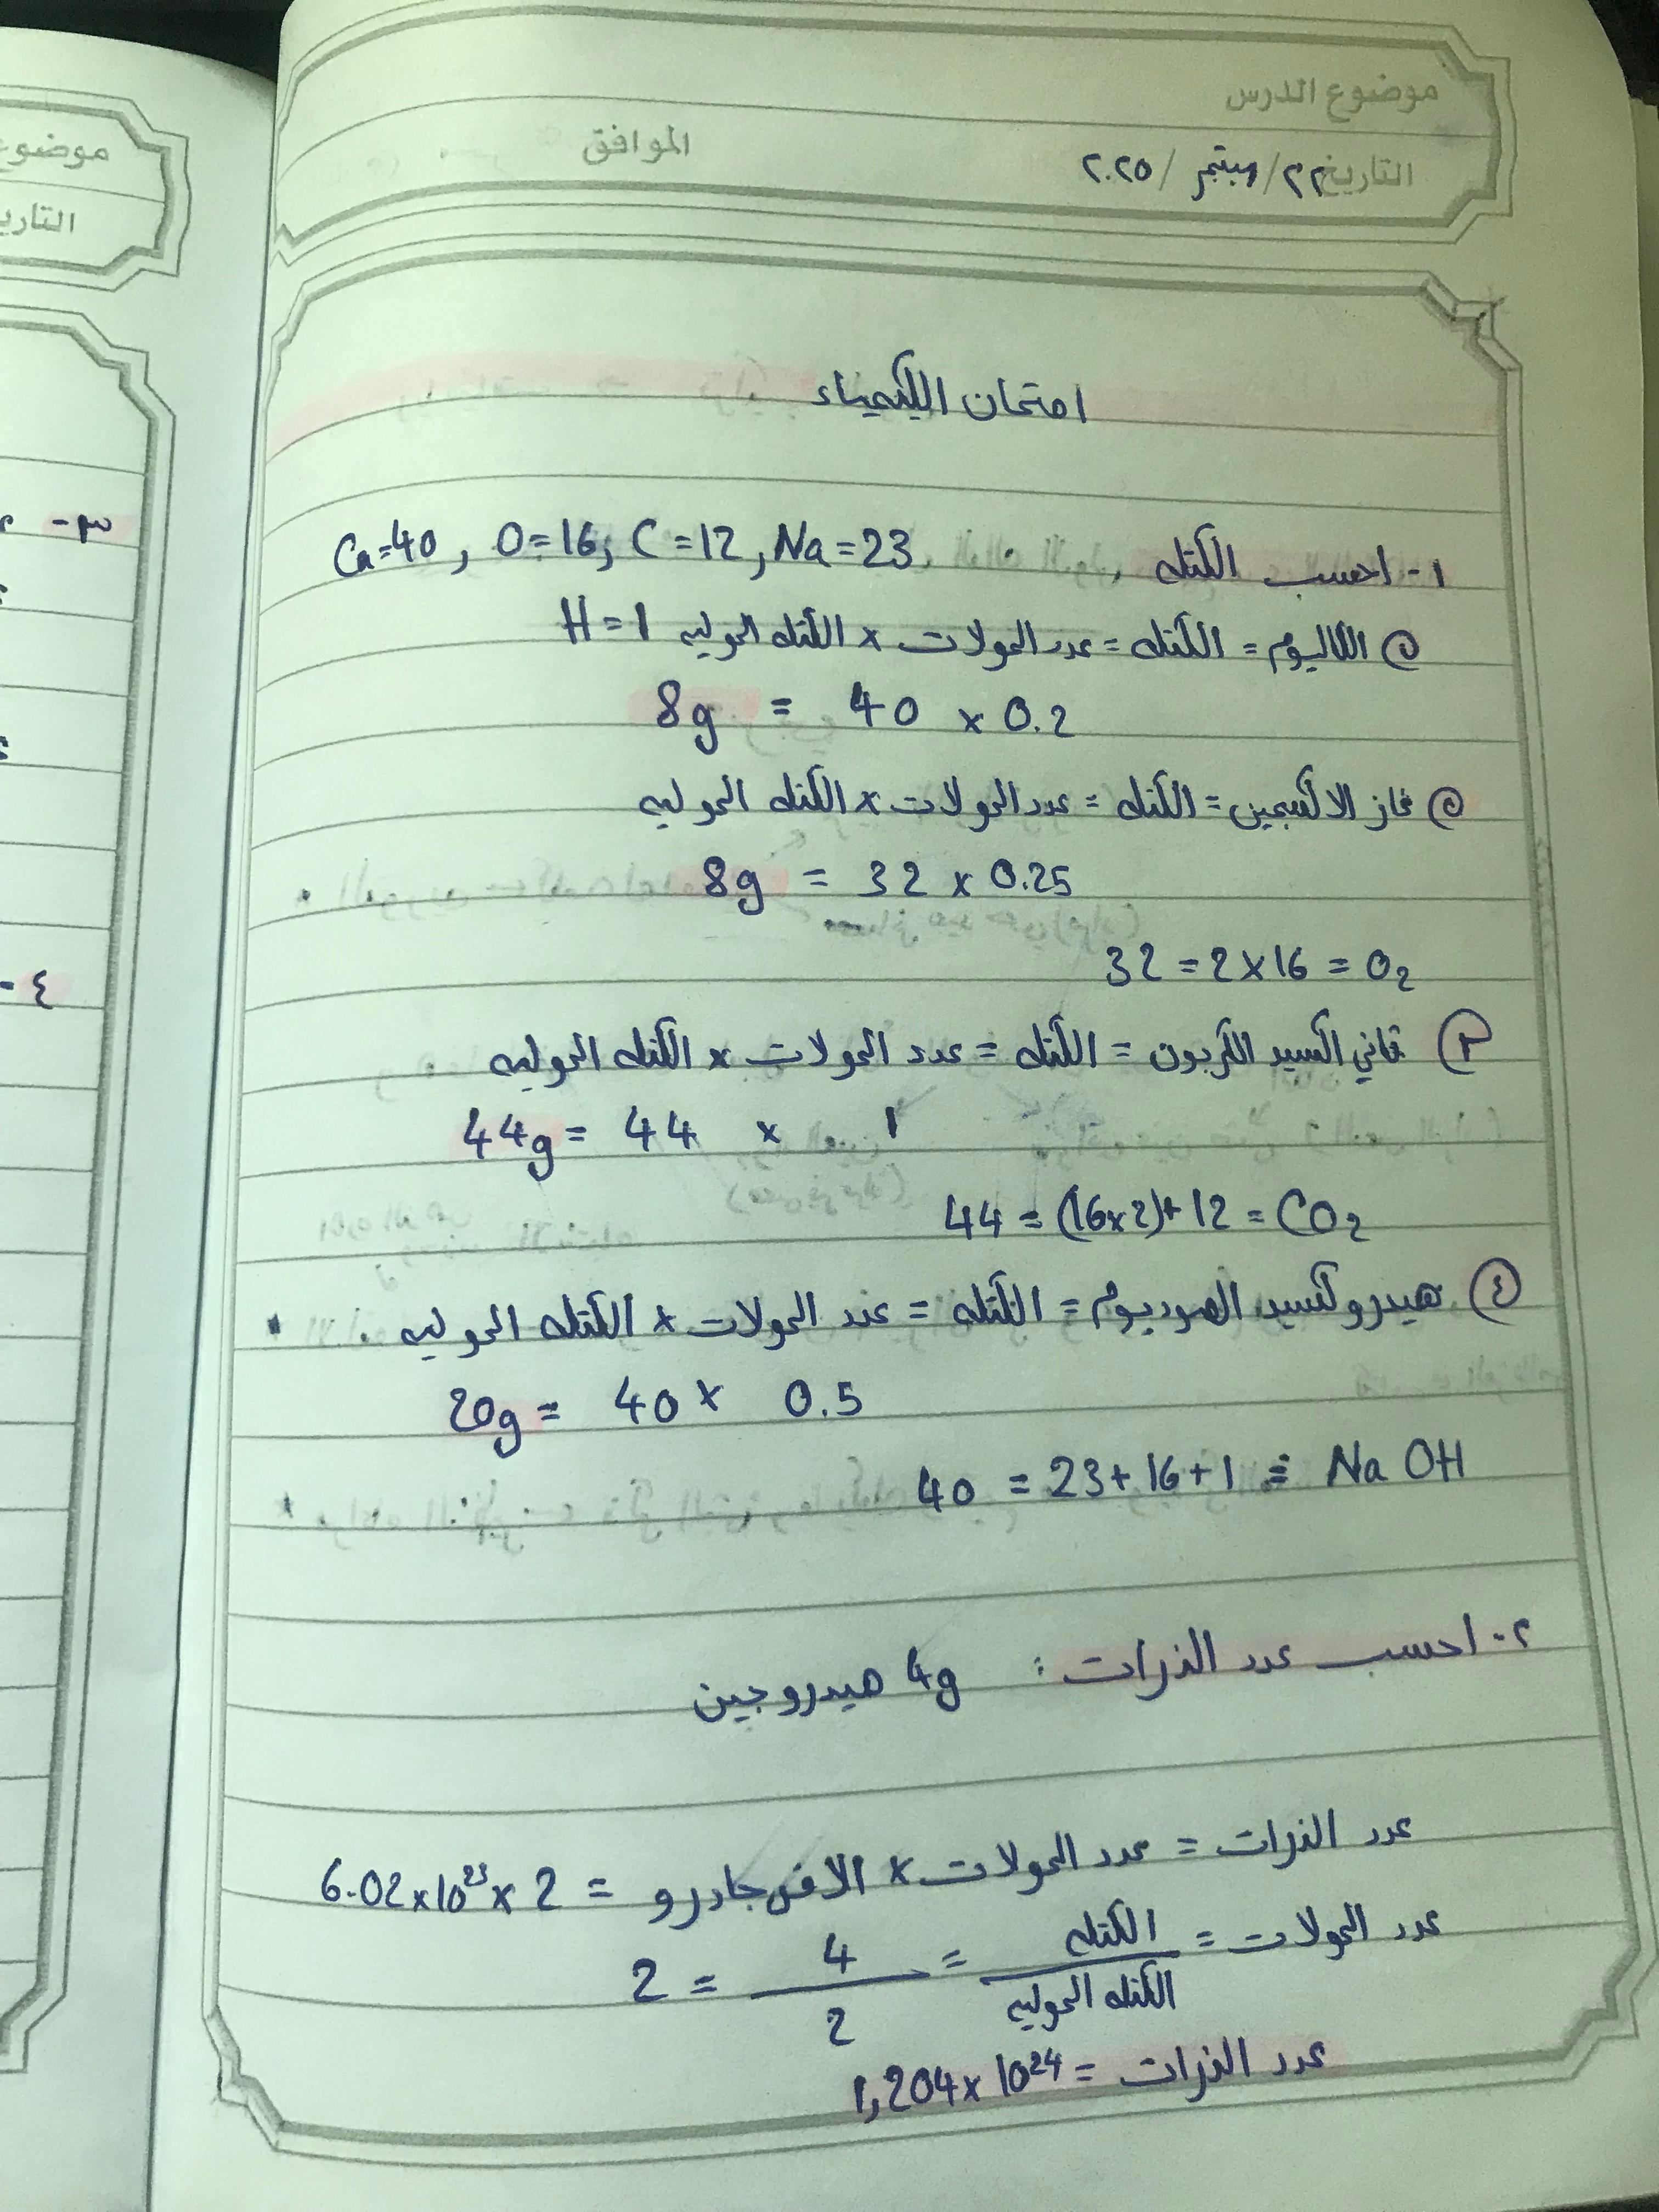 موضوع الدرس
التاريخ ٢٢/ سبتمبر / ٢٠٢٥ الموافق
موضوع
التاري
٣-
٤-
امتحان الكيمياء
١- احسب الكتله , Ca=40 , O=16, C=12, Na=23
الكاليوم = الكتله = عدد المولات × الكتله الموليه H=1
8g = 40 x 0.2
غاز الاكسجين = الكتله = عدد المولات × الكتله الموليه
8g = 32 x 0.25
32 = 2x16 = O₂
٣ ثاني اكسيد الكربون = الكتله = عدد المولات × الكتله الموليه
44g = 44 x 1
44 = (16x2)+12 = CO₂
٤ هيدروكسيد الصوديوم = الكتله = عدد المولات × الكتله الموليه
20g = 40 x 0.5
40 = 23+16+1 = NaOH
٢- احسب عدد الذرات : 4g هيدروجين
عدد الذرات = عدد المولات × الافوجادرو = 6.02x10²³x 2
عدد المولات = الكتله / الكتله الموليه = 4 / 2 = 2
عدد الذرات = 1,204x10²⁴